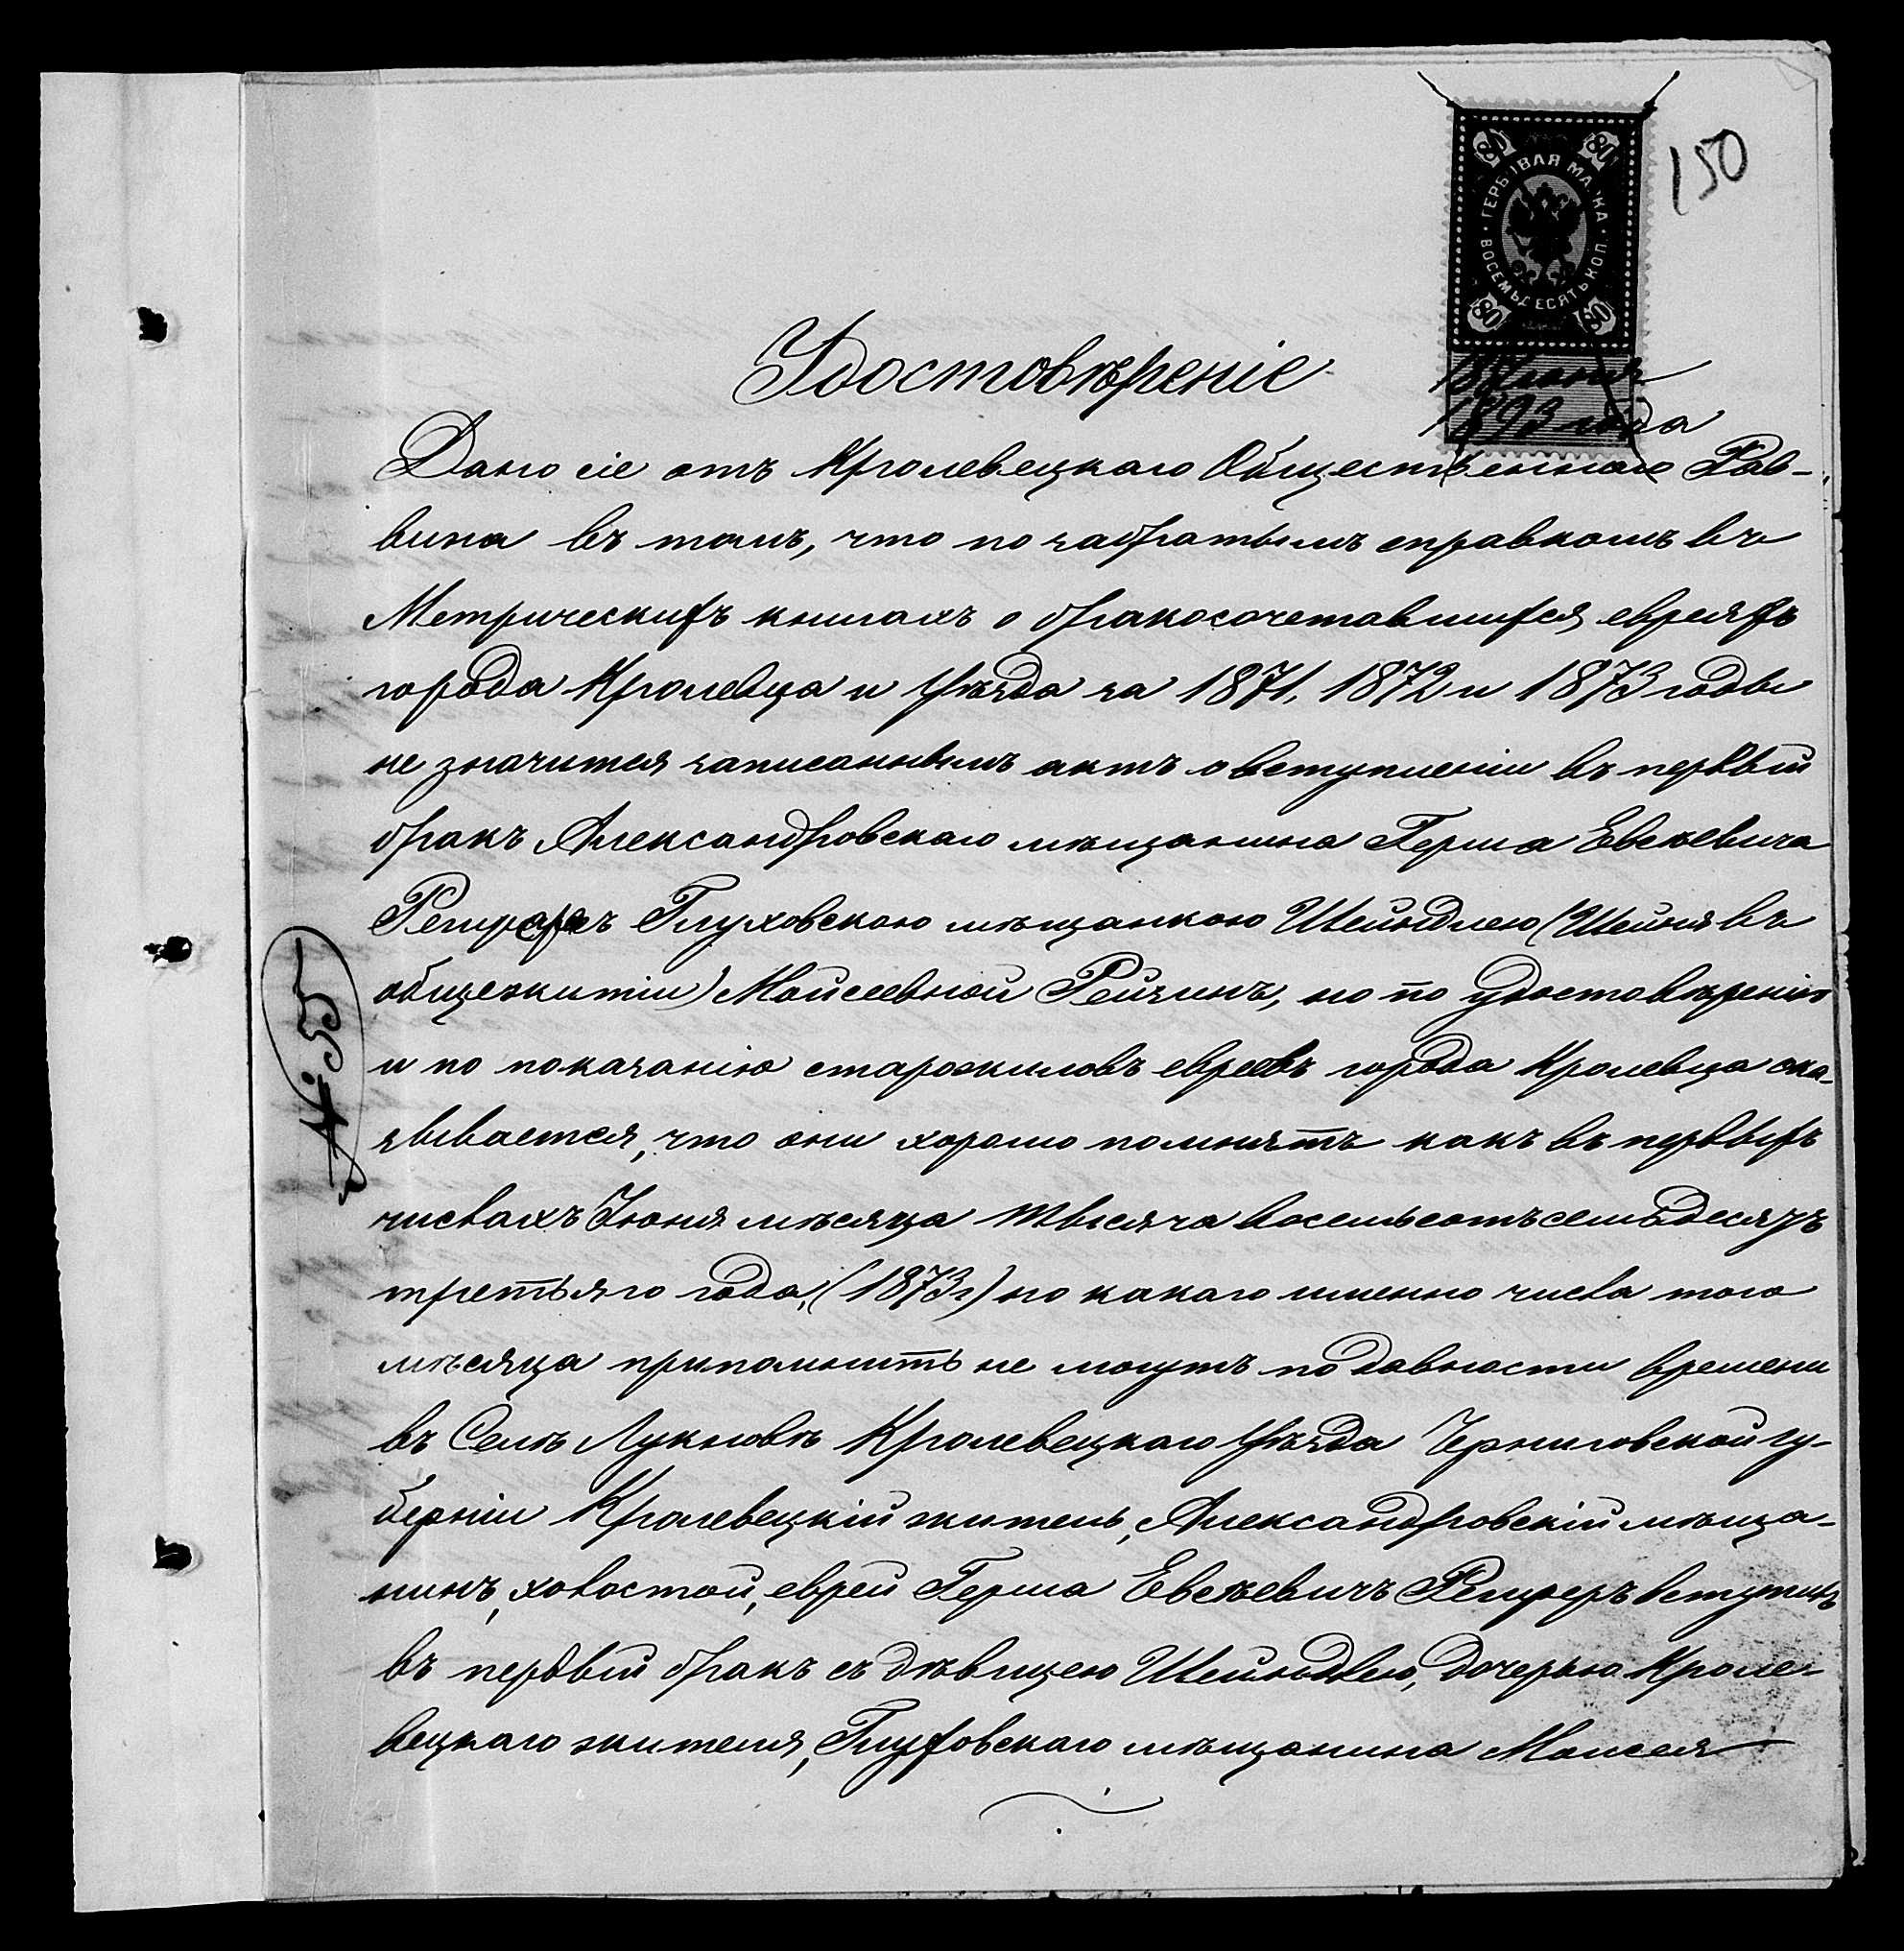 150
ГЕРБОВАЯ МАРКА
ВОСЕМЬДЕСЯТЬ КОП.
80 80
80 80
18 Июня
1893 года
Удостовѣреніе
Дано сіе отъ Кролевецкаго Общественнаго Рав-
вина въ томъ, что по забратымъ справкамъ въ
Метрическихъ книгахъ о бракосочетавшихся евреяхъ
города Кролевца и уѣзда за 1871, 1872 и 1873 годы
не значится записаннымъ актъ о вступленіи въ первый
бракъ Александровскаго мѣщанина Герша Евсѣевича
съ Глуховскою мѣщанкою Шейндлею (Шейня въ
общежитіи) Мойсеевной Рейзинъ, но по удостовѣренію
и по показанію старожиловъ евреевъ города Кролевца ока-
зывается, что они хорошо помнятъ какъ въ первыхъ
числахъ Іюня мѣсяца тысяча восемьсотъ семьдесятъ
третьяго года, (1873 г) но какаго именно числа того
мѣсяца припомнить не могутъ по давности времени
въ Селѣ Лукновѣ Кролевецкаго уѣзда Черниговской гу-
берніи Кролевецкій житель, Александровскій мѣща-
нинъ, холостой, еврей Герша Евсѣевичъ вступилъ
въ первый бракъ съ дѣвицею Шейндлею, дочерью Кроле-
вецкаго жителя, Глуховскаго мѣщанина Моисея
№ 55